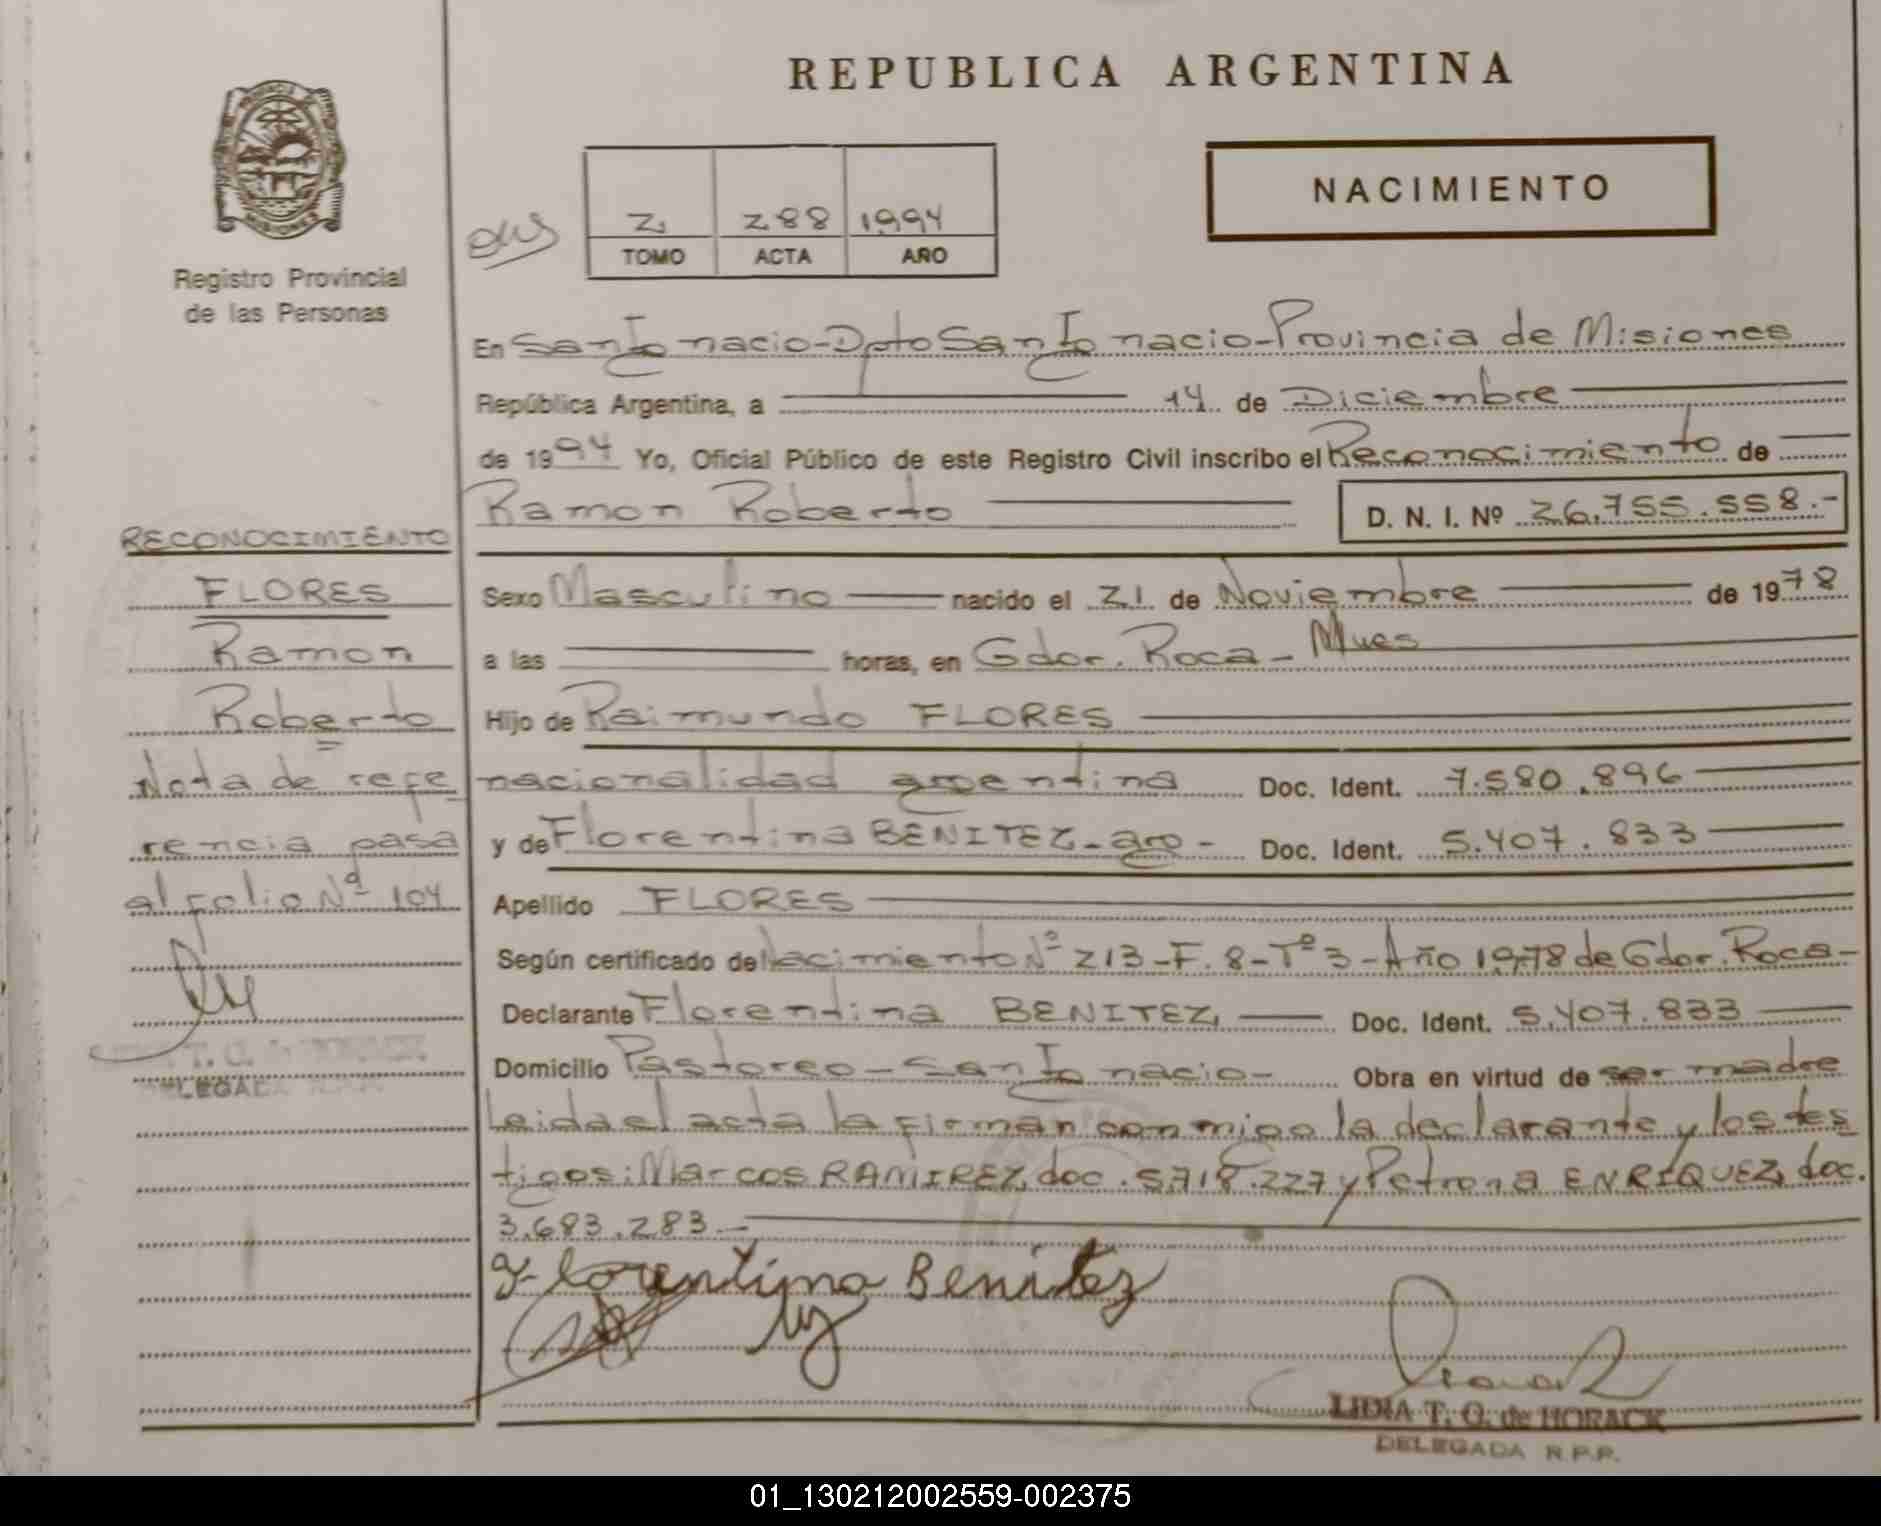 REPUBLICA ARGENTINA
NACIMIENTO
2 288 1994
TOMO ACTA AÑO
Registro Provincial
de las Personas
En San Ignacio-Dpto San Ignacio-Provincia de Misiones
República Argentina, a 14 de Diciembre
de 1994 Yo, Oficial Público de este Registro Civil inscribo el Reconocimiento de
Ramon Roberto D. N. I. Nº 26.755.558.-
Sexo Masculino nacido el 21 de Noviembre de 1978
a las horas, en Gdor. Roca - Mnes
Hijo de Raimundo FLORES
nacionalidad argentina Doc. Ident. 7.580.896
y de Florentina BENITEZ - arg - Doc. Ident. 5.407.833
Apellido FLORES
Según certificado de Nacimiento Nº 213-F. 8-Tº 3-Año 1978 de Gdor. Roca-
Declarante Florentina BENITEZ, Doc. Ident. 5.407.833
Domicilio Pastoreo - San Ignacio - Obra en virtud de ser madre
Leida el acta la firman conmigo la declarante y los tes
tigos: Marcos RAMIREZ, doc. 5.718.227 y Petrona ENRIQUEZ, doc.
3.683.283.-
Florentina Benitez
LIDIA T. Q. de HORACK
DELEGADA R.P.P.
RECONOCIMIENTO
FLORES
Ramon
Roberto
Nota de refe
rencia pasa
al folio Nº 104
01_130212002559-002375